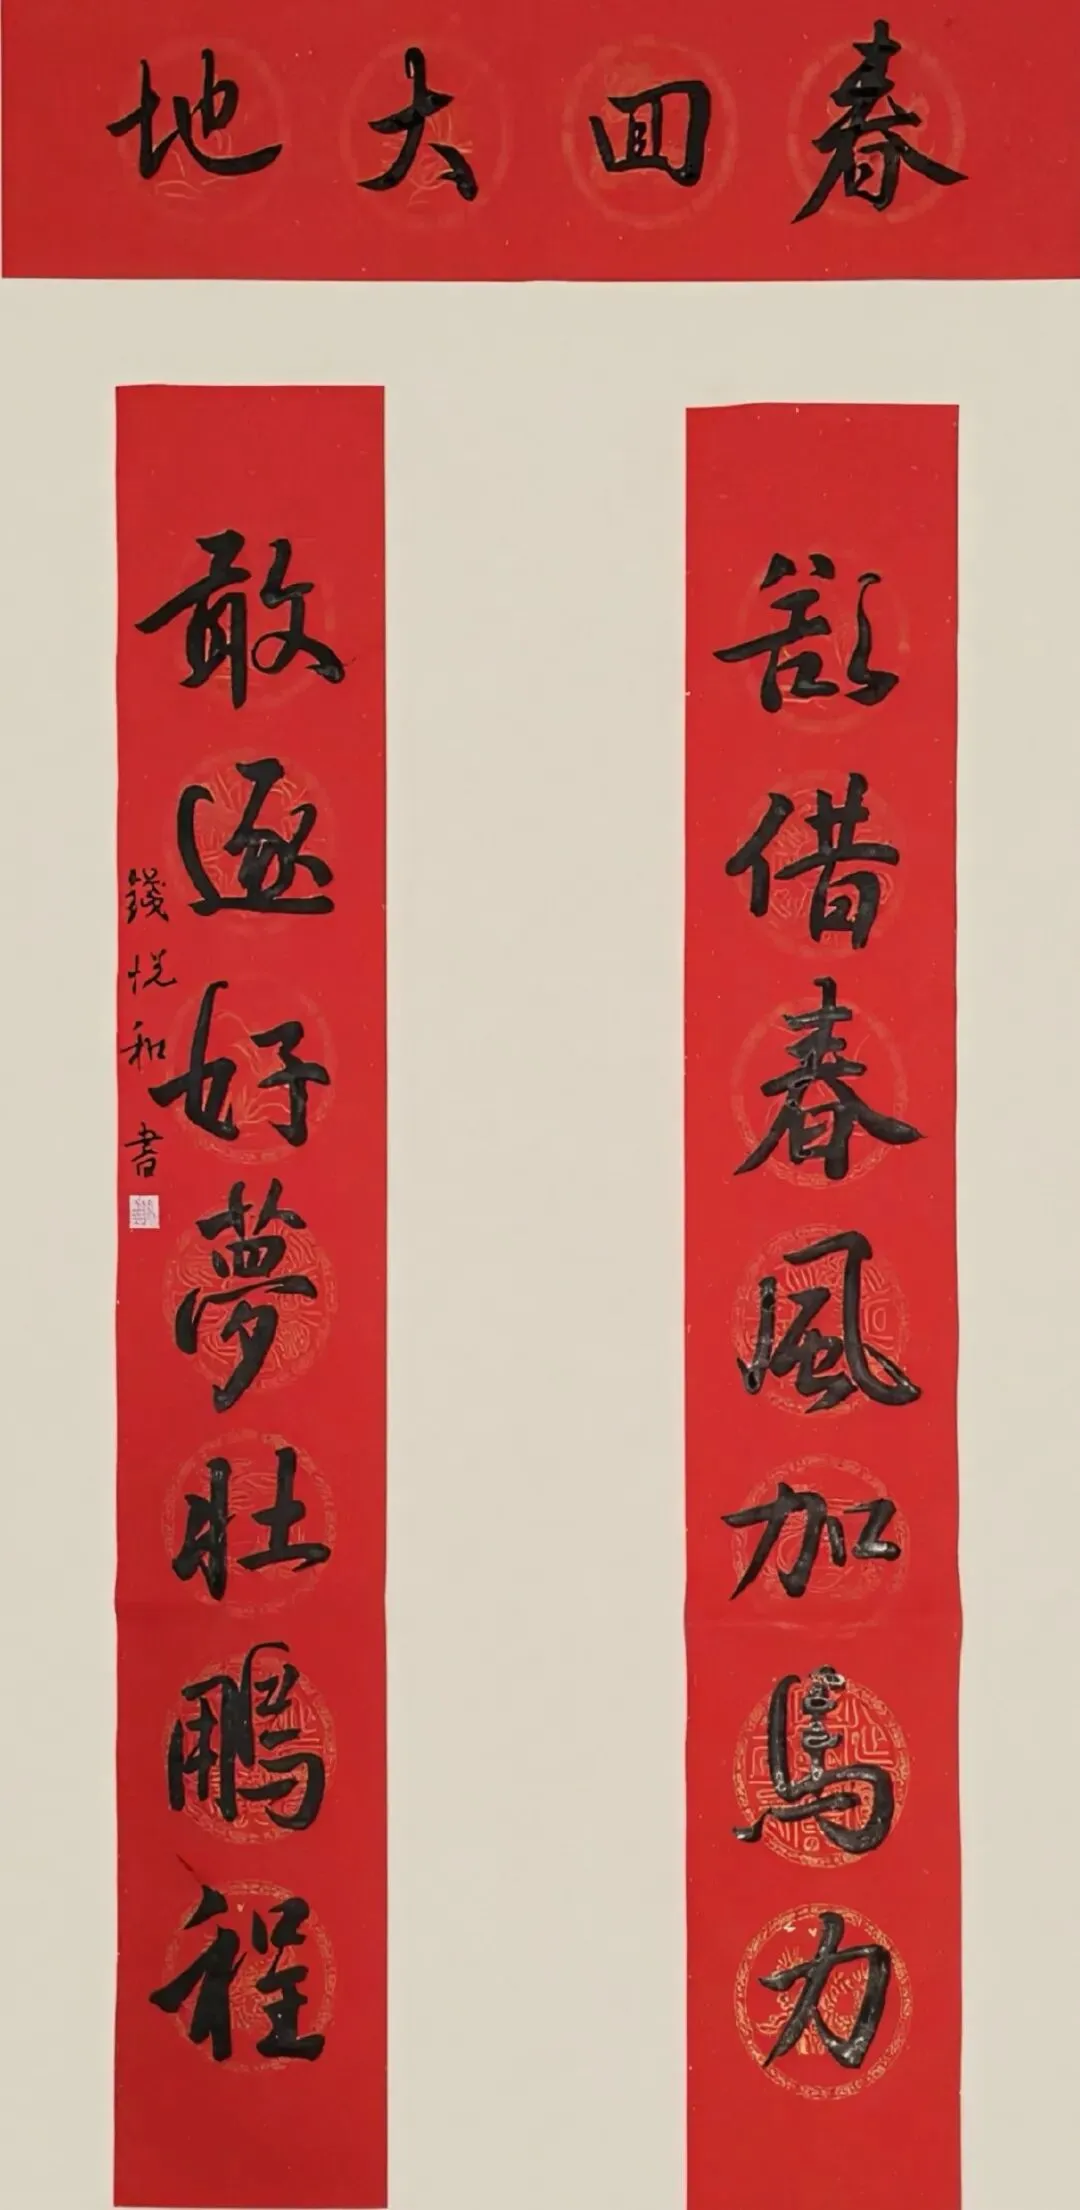 春回大地
欲借春風加馬力
敢逐好夢壯鵬程
錢悦和書